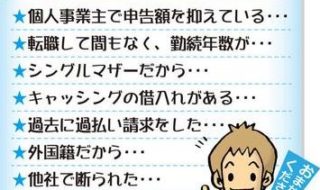 ★個人事業主で申告額を抑えている･･･
★転職して間もなく、勤続年数が･･･
★シングルマザーだから･･･
★キャッシングの借入れがある･･･
★過去に過払い請求をした･･･
★外国籍だから･･･
★他社で断られた･･･